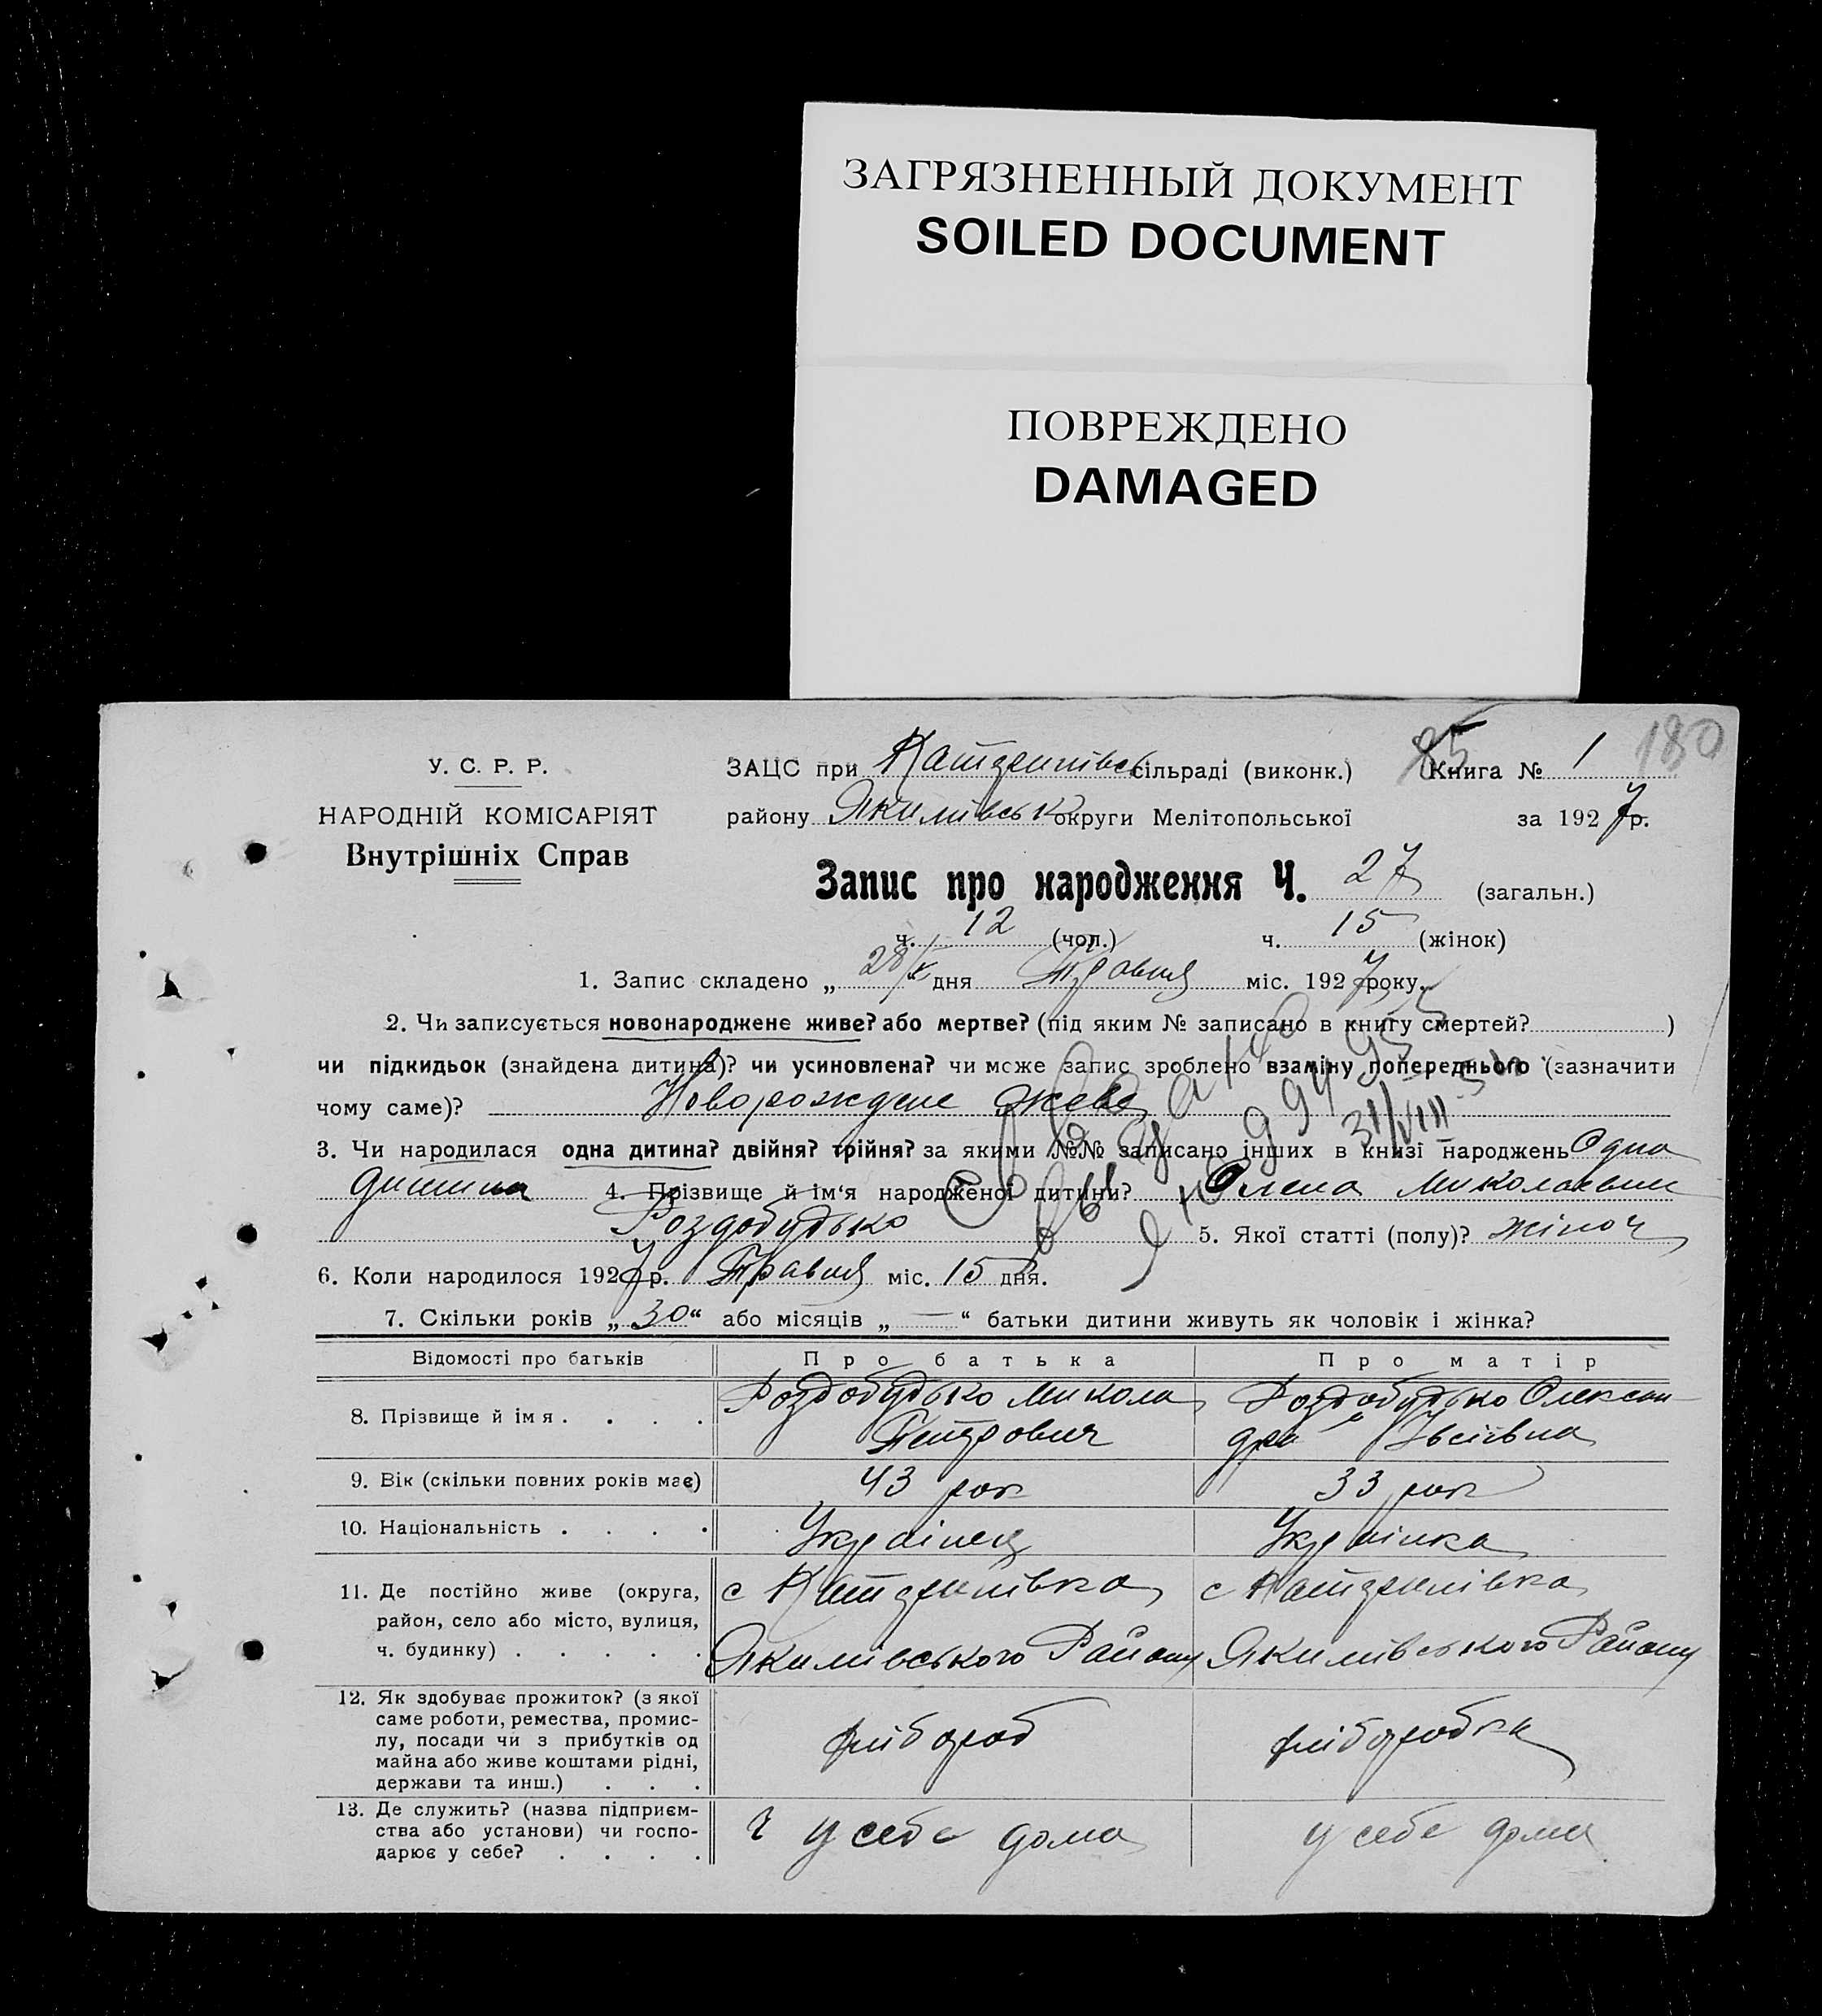 ЗАГРЯЗНЕННЫЙ ДОКУМЕНТ
SOILED DOCUMENT
ПОВРЕЖДЕНО
DAMAGED
85 180
У. С. Р. Р.
НАРОДНІЙ КОМІСАРІЯТ
Внутрішніх Справ
ЗАЦС при сільраді (виконк.) Книга № 1
району Якимівськ округи Мелітопольської за 1927 р.
Запис про народження Ч. 27 (загальн.)
ч. 12 (чол.) ч. 15 (жінок)
1. Запис складено „ 28/V дня Травня міс. 1927 року.
2. Чи записується новонароджене живе? або мертве? (під яким № записано в книгу смертей? )
чи підкидьок (знайдена дитина)? чи усиновлена? чи може запис зроблено взаміну попереднього (зазначити
чому саме)? Новорождене живе
3. Чи народилася одна дитина? двійня? трійня? за якими №№ записано інших в книзі народжень Одна
дитина 4. Прізвище й ім‘я народженої дитини? Олена Миколаевна
Роздобудько 5. Якої статті (полу)? жіноч
6. Коли народилося 1927 р. Травня міс. 15 дня.
7. Скільки років „ 30 “ або місяців „ — “ батьки дитини живуть як чоловік і жінка?
Відомості про батьків Про батька Про матір
8. Прізвище й імя . . . . Роздобудько Микола Роздобудько Олексан-
Петрович дра Івсіївна
9. Вік (скільки повних років має) 43 рок 33 рок
10. Національність . . . . Українец Українка
11. Де постійно живе (округа,
район, село або місто, вулиця,
ч. будинку) . . . . .
с Катеринівка с Катеринівка
Якимівського Району Якимівського Району
12. Як здобуває прожиток? (з якої
саме роботи, ремества, промис-
лу, посади чи з прибутків од
майна або живе коштами рідні,
держави та инш.) . . .
хлібороб хліборобка
13. Де служить? (назва підприєм-
ства або установи) чи госпо-
дарює у себе? . . . .
у себе дома у себе дома